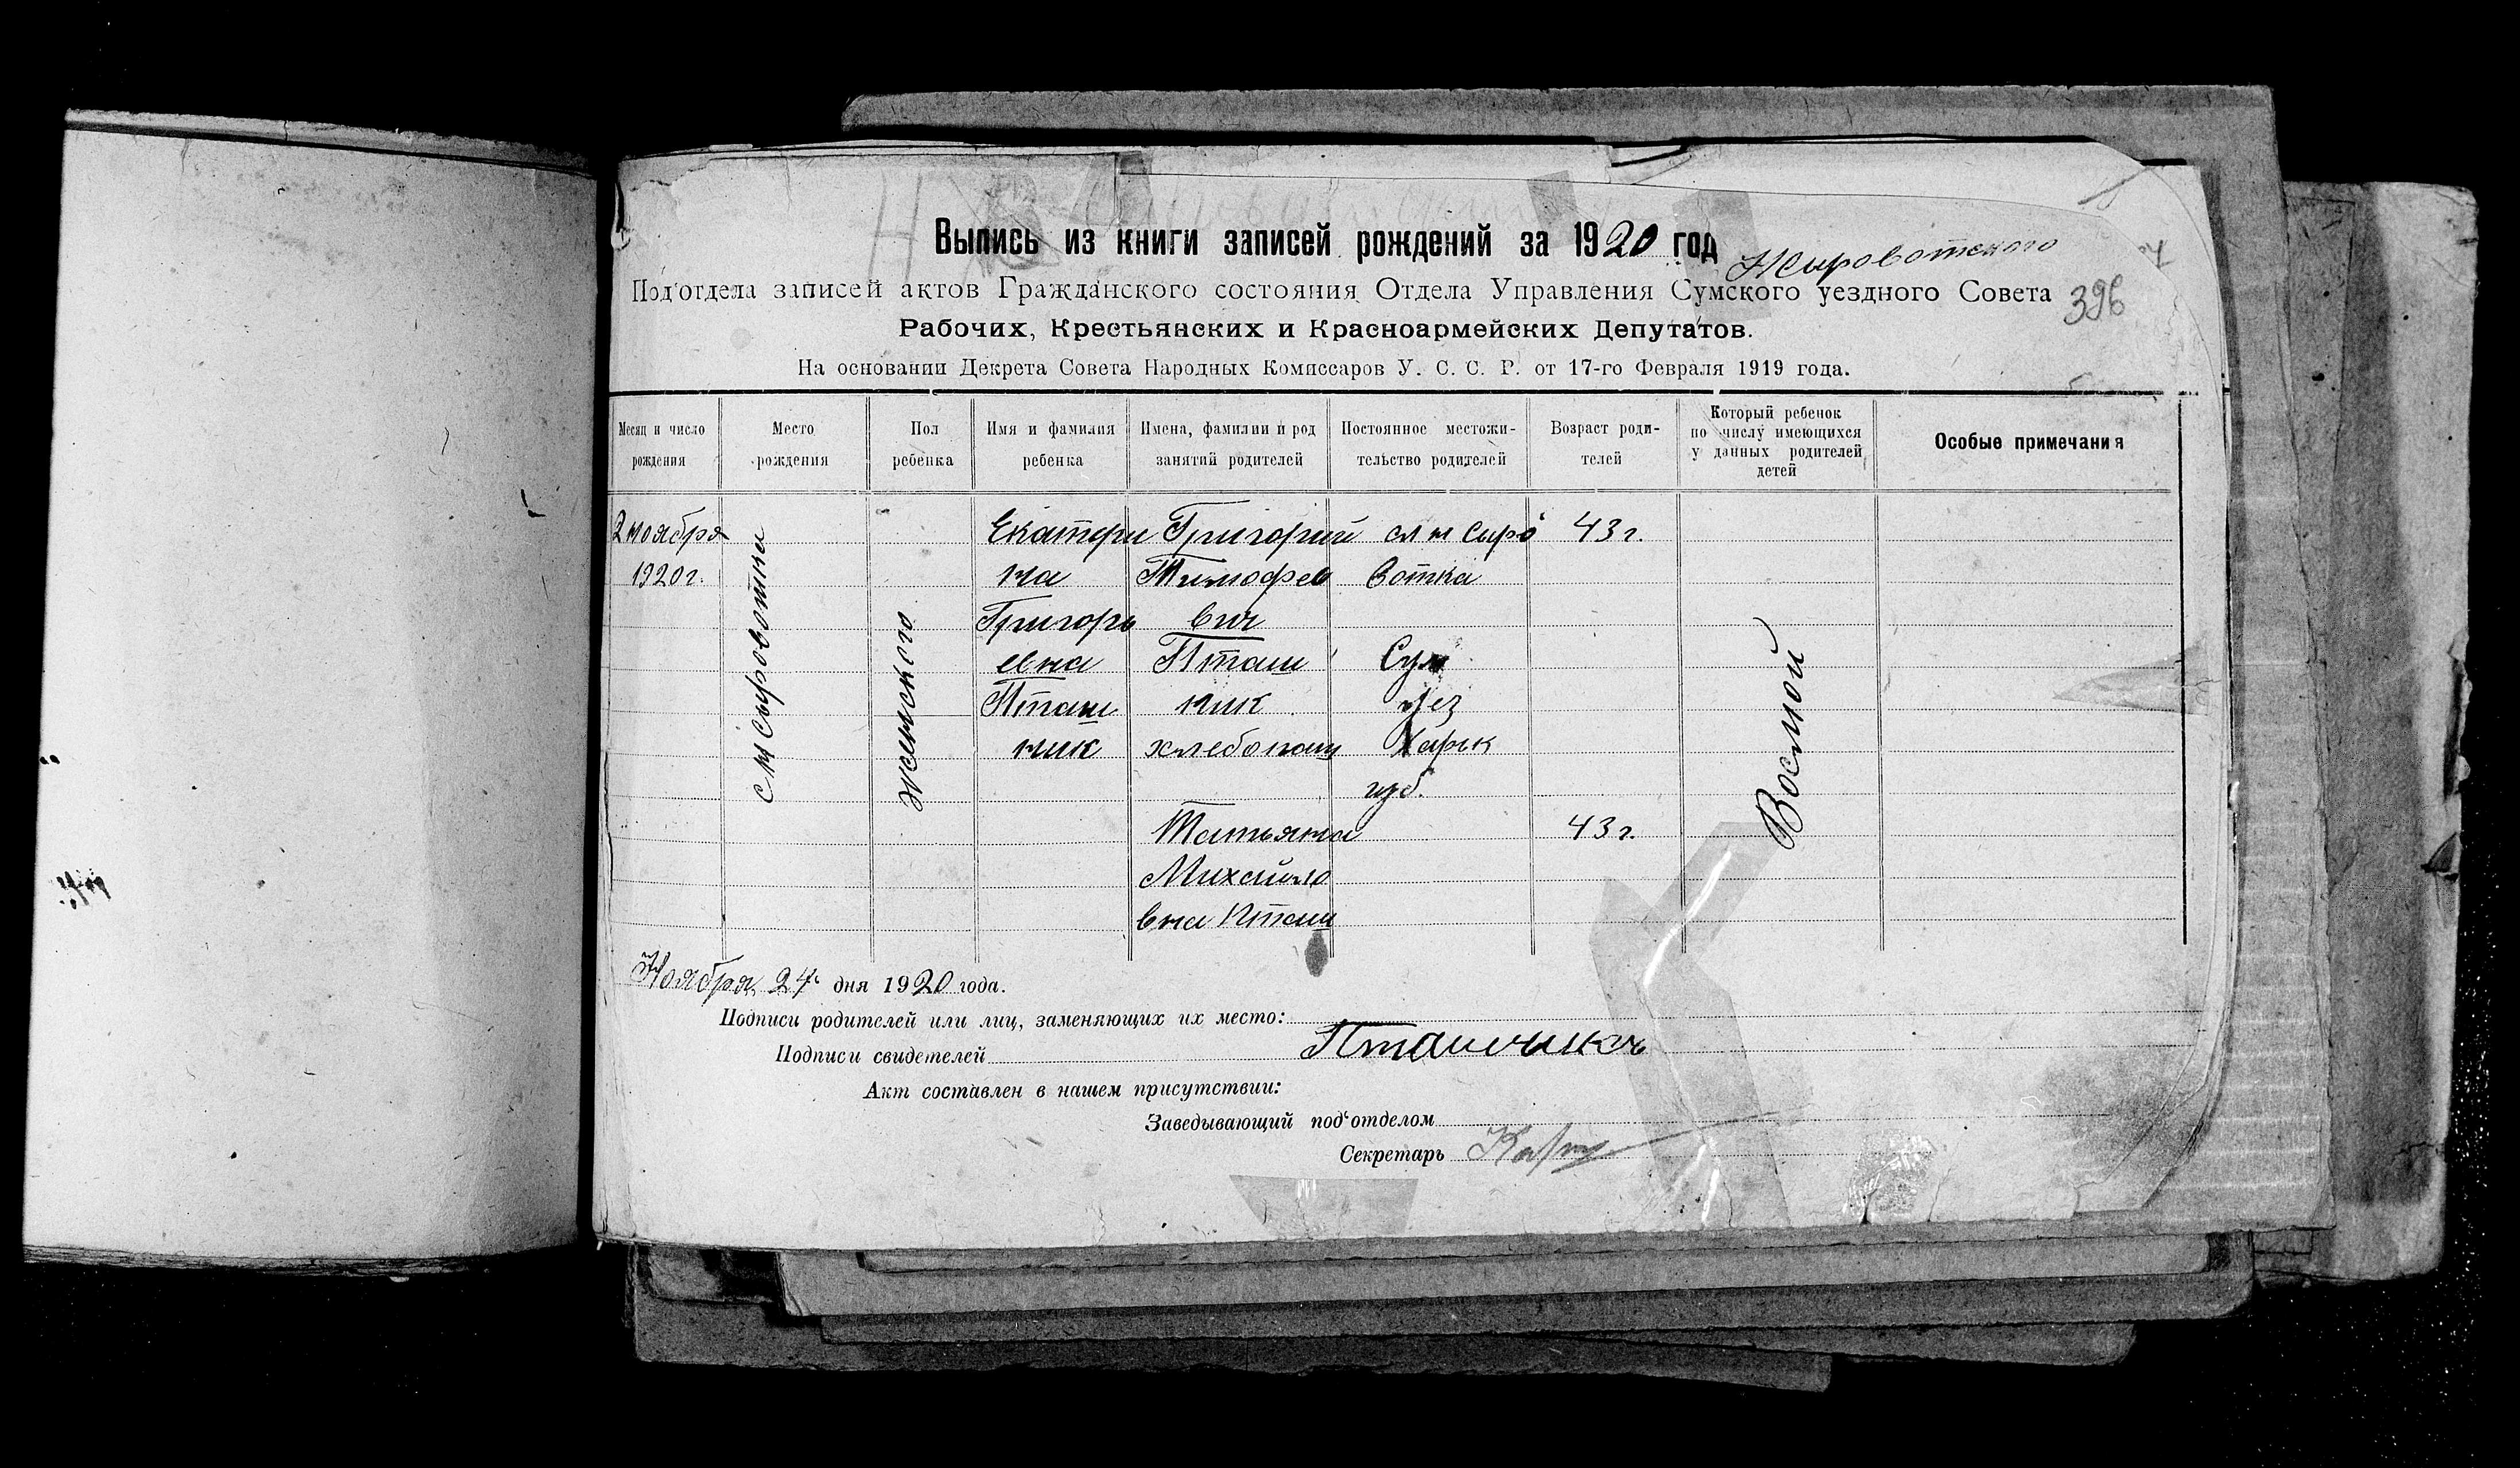 Выпись из книги записей рождений за 1920 год
Н Сыроватского
Под'отдела записей актов Гражданского состояния Отдела Управления Сумского уездного Совета
396
Рабочих, Крестьянских и Красноармейских Депутатов.
На основании Декрета Совета Народных Комиссаров У. С. С. Р. от 17-го Февраля 1919 года.
Месяц и число рождения
Место рождения
Пол ребенка
Имя и фамилия ребенка
Имена, фамилии и род занятий родителей
Постоянное местожительство родителей
Возраст родителей
Который ребенок по числу имеющихся у данных родителей детей
Особые примечания
2 ноября
1920 г.
сл н сыровотка
женского
Екатери
на
Григорь
евна
Пташ
ник
Григорий
Тимофее
вич
Пташ
ник
хлебопаш
Татьяна
Михайло
вна Пташ
сл н сыро
вотка
Сум
уез
Харьк
губ.
43 г.
43 г.
Восмой
Ноября 24 дня 1920 года.
Подписи родителей или лиц, заменяющих их место:
Подписи свидетелей
Акт составлен в нашем присутствии:
Заведывающий под'отделом
Секретарь